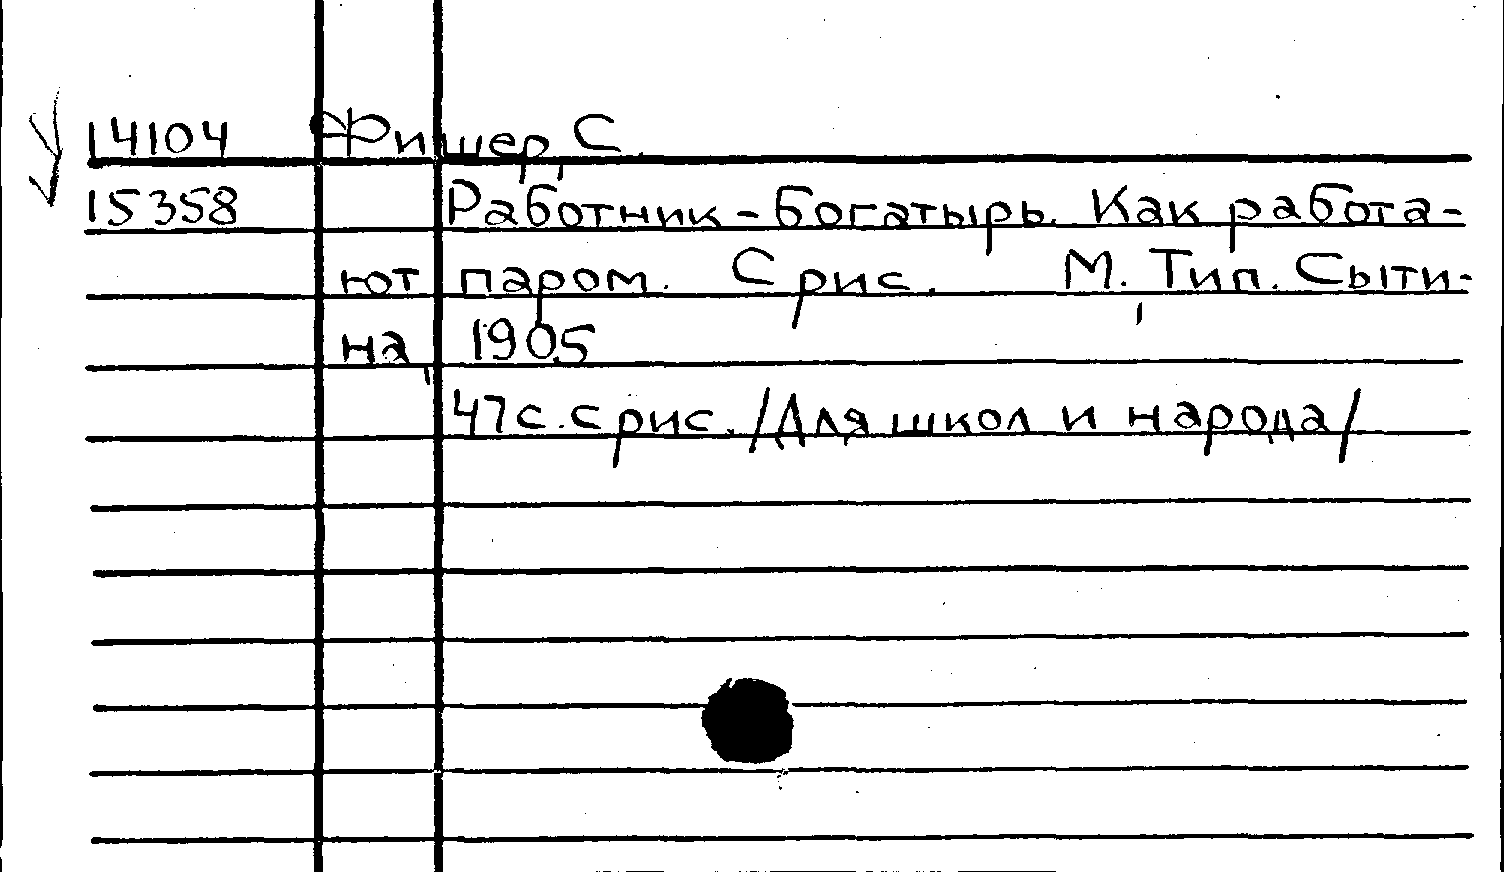 14104 Фишер, С.
15358 Работник-богатырь. Как работа-
ют паром. С рис. М. Тип. Сыти-
на, 1905
47с. с рис. /Для школ и народа/